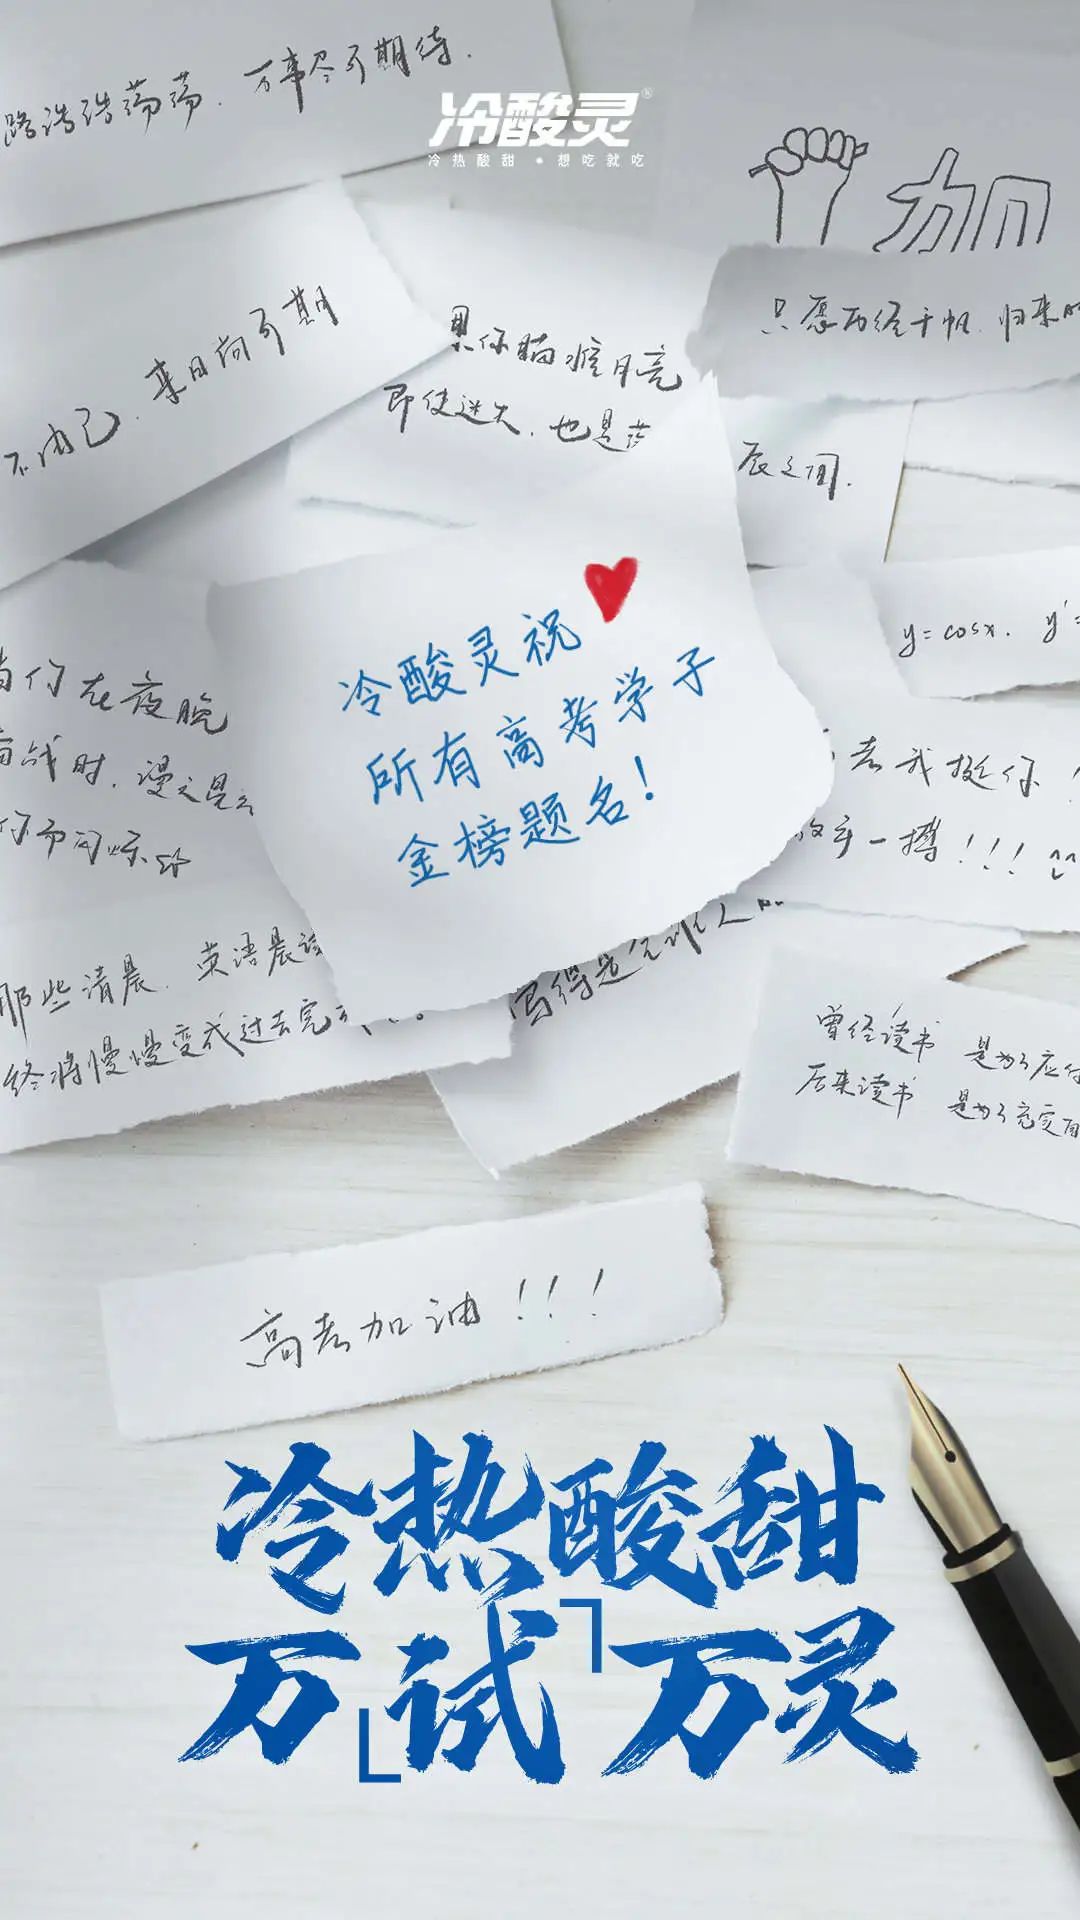 路浩浩荡荡，万事尽可期待.
冷酸灵®
冷热酸甜 • 想吃就吃
加
不由己，来日尚可期
果你瞄准月亮
即使迷失，也是
辰之间.
只愿历经千帆，归来
冷酸灵祝
所有高考学子
金榜题名！
y=cosx. y'=
你在夜晚
战时，漫
考我挺你！
一搏！！！
那些清晨，英语晨读
终将慢慢变成过去完
写得是
曾经读书 是为了应付
后来读书 是为了充实自
高考加油！！！
冷热酸甜
万「试」万灵